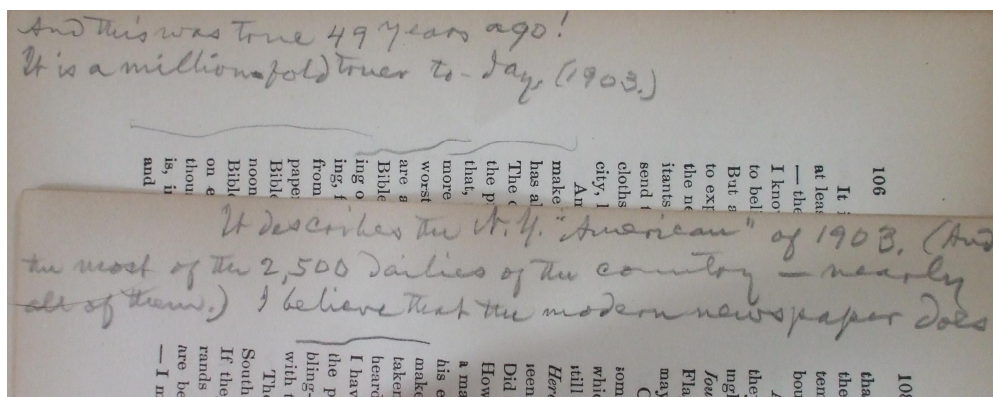 And this was true 49 years ago!
It is a million-fold truer to-day, (1903.)
106
It i
at leas
— the
I know
to beli
But a
to exp
the ne
itants
send t
cloths
city, l
An
make
has al
The c
the p
that,
more
worst
are a
Bible
ing o
ing, f
from
pape
Bibl
noon
Bibl
on e
thou
is, i
and
It describes the N.Y. "American" of 1903. (And
the most of the 2,500 dailies of the country — nearly
all of them.) I believe that the modern newspaper does
108
tha
the
tem
bou
A
the
ingl
Jou
Fla
may
C
som
whic
still
Here
seen
Did
How
a ma
his e
make
taken
heard
I hav
the p
bling-
with t
The
South
If the
rands
are be
— I m